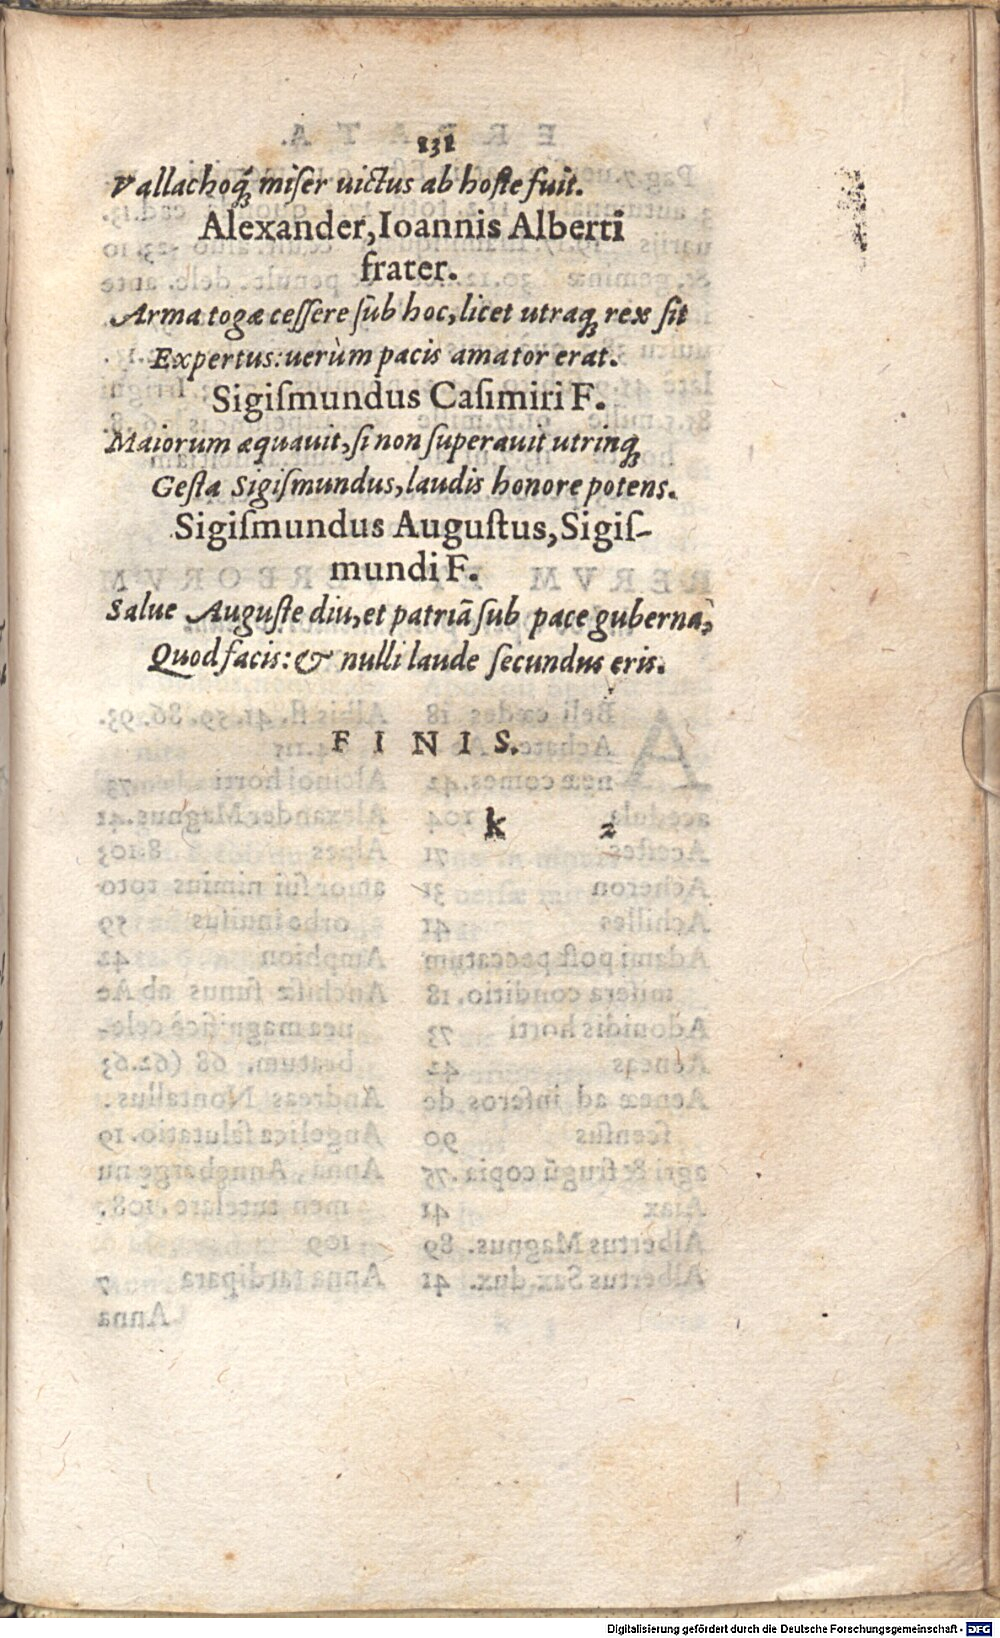 131
Vallachoq́ꝫ miſer uictus ab hoſte fuit.
Alexander, Ioannis Alberti
frater.
Arma togæ ceſſere ſub hoc, licet utraqꝫ rex ſit
Expertus: uerùm pacis amator erat.
Sigiſmundus Caſimiri F.
Maiorum æquauit, ſi non ſuperauit utrinqꝫ
Geſta Sigiſmundus, laudis honore potens.
Sigiſmundus Auguſtus, Sigiſ-
mundi F.
Salue Auguſte diu, et patriā ſub pace guberna,
Quod facis: & nulli laude ſecundus eris.
FINIS.
k 2
Digitalisierung gefördert durch die Deutsche Forschungsgemeinschaft - DFG